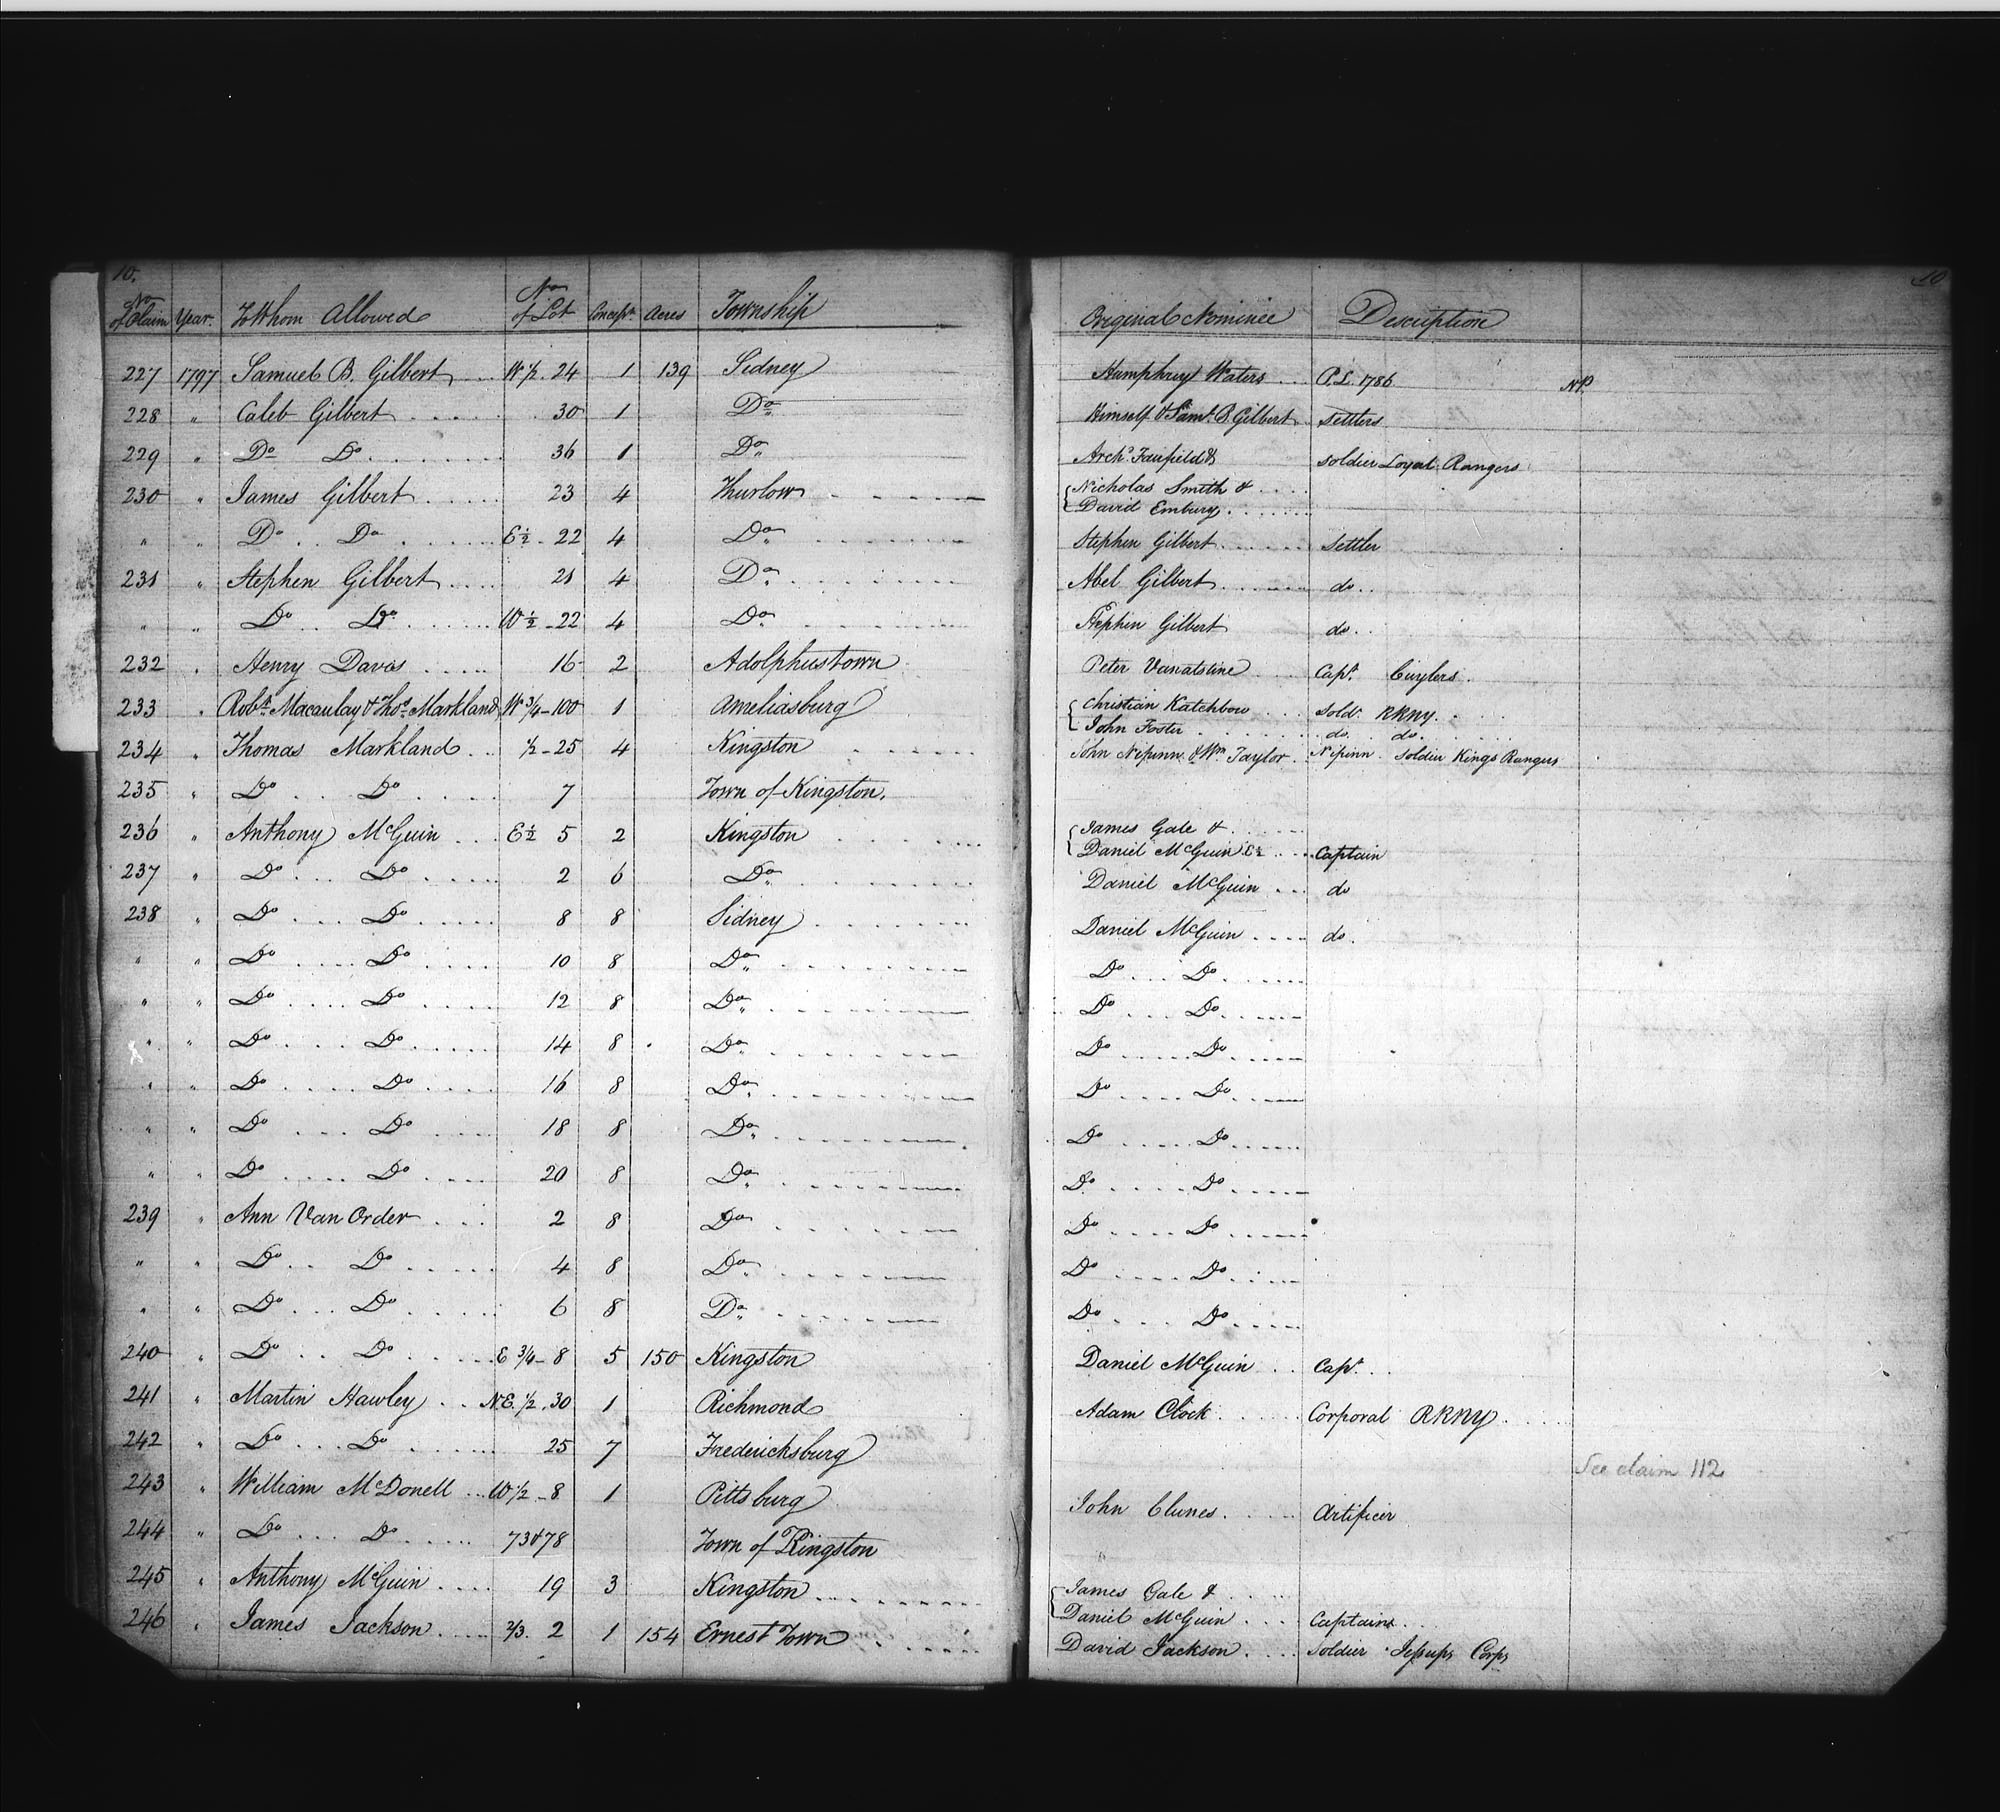 10. 10
No of Claim Year. To Whom Allowed No of Lot Concessn. Acres Township Original Nominee Description
227 1797 Samuel B. Gilbert W ½ . 24 1 139 Sidney Humphrey Waters P.L. 1786 NB.
228 " Caleb Gilbert 30 1 Do Himself & Saml. B. Gilbert Settlers
229 " Do Do 36 1 Do Archd. Fairfield & Soldier Loyal Rangers
230 " James Gilbert 23 4 Thurlow { Nicholas Smith &
David Embury
" " Do Do E ½ - 22 4 Do Stephen Gilbert Settler
231 " Stephen Gilbert 21 4 Do Abel Gilbert do
" " Do Do W ½ - 22 4 Do Stephen Gilbert do
232 " Henry Davis 16 2 Adolphustown Peter Vanalstine Capt. Cuylers
233 " Robt. Macaulay & Thos. Markland W ¾ - 100 1 Ameliasburg { Christian Katchbow Soldr. RRNY
John Foster do do
234 " Thomas Markland ½ - 25 4 Kingston John Nipinn & Wm Taylor Nipinn Soldier Kings Rangers
235 " Do Do 7 Town of Kingston.
236 " Anthony McGuin E ½ 5 2 Kingston { James Gale &
Daniel McGuin E½ Captain
237 " Do Do 2 6 Do Daniel McGuin do
238 " Do Do 8 8 Sidney Daniel McGuin do.
" " Do Do 10 8 Do Do Do
" " Do Do 12 8 Do Do Do
" " Do Do 14 8 Do Do Do
" " Do Do 16 8 Do Do Do
" " Do Do 18 8 Do Do Do
" " Do Do 20 8 Do Do Do
239 " Ann Van Order 2 8 Do Do Do
" " Do Do 4 8 Do Do Do
" " Do Do 6 8 Do Do Do
240 " Do Do E ¾ - 8 5 150 Kingston Daniel McGuin Capt.
241 " Martin Hawley N.E. ½ . 30 1 Richmond Adam Clock Corporal RRNY
242 " Do Do 25 7 Fredericksburg See claim 112
243 " William McDonell W ½ - 8 1 Pittsburg John Clunes Artificer
244 " Do Do 73 & 78 Town of Kingston
245 " Anthony McGuin 19 3 Kingston { James Gale &
Daniel McGuin Captains
246 " James Jackson ⅔ . 2 1 154 Ernest Town David Jackson Soldier Jessups Corps